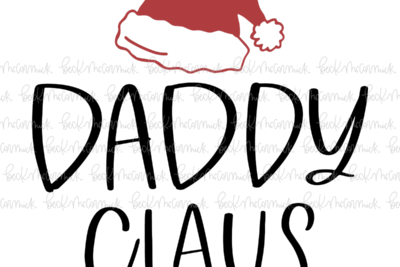 DADDY
CLAUS